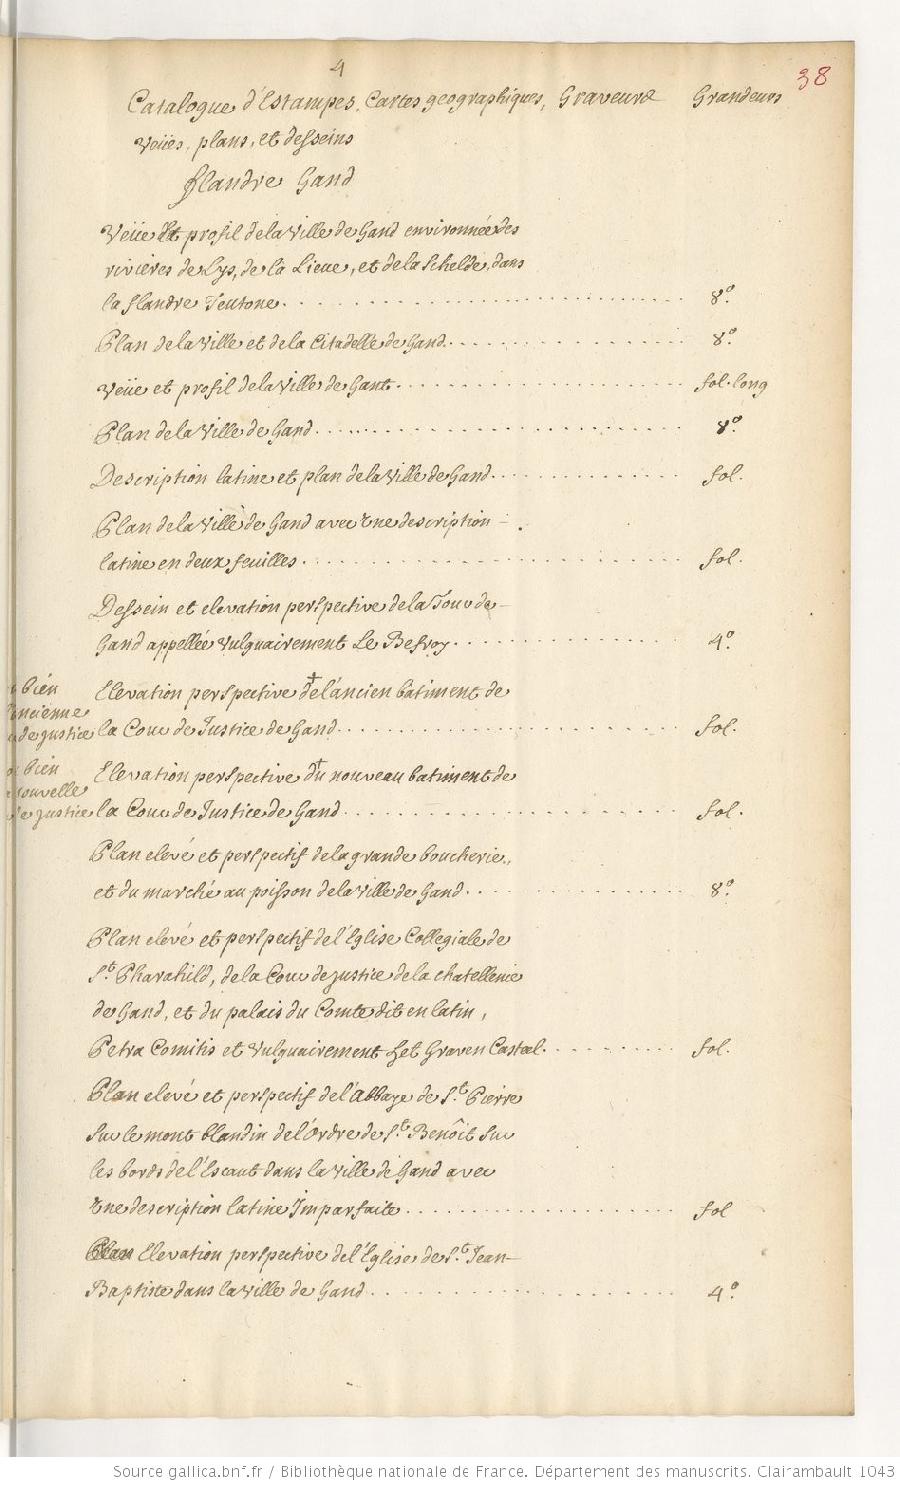 4
38
Catalogue d'Estampes, Cartes geographiques, Graveure Grandeurs
Veües, plans, et desseins
flandre Gand
Veüe et profil de la Ville de Gand environnée des
rivieres de Lys, de la Lieue, et de la Schelde, dans
la flandre Teutone. 8º.
Plan de la Ville et de la Citadelle de Gand. 8º.
Veüe et profil de la Ville de Gant. fol. long
Plan de la Ville de Gand. 8º.
Description latine et plan de la Ville de Gand. fol.
Plan de la Ville de Gand avec Une description
latine en deux feuilles. fol.
Dessein et elevation perspective de la Tour de
Gand appellée Vulguairement Le Befroy. 4º.
Elevation perspective de l'ancien bâtiment de
la Cour de Justice de Gand. fol.
bien
ancienne
de justice
Elevation perspective du nouveau batiment de
la Cour de Justice de Gand. fol.
bien
nouvelle
de justice
Plan elevé et perspectif de la grande boucherie,
et du marché au poisson de la Ville de Gand. 8º.
Plan elevé et perspectif de l'Eglise Collegiale de
St. Pharahild, de la Cour de justice de la chatellenie
de Gand, et du palais du Comte dit en latin,
Petra Comitis et Vulguairement Het Graven Casteel. fol.
Plan elevé et perspectif de l'Abbaye de St. Pierre
sur le mont blandin de l'Ordre de St. Benoît sur
les bords de l'Escaut dans la Ville de Gand avec
Une description latine Imparfaite. fol
Elevation perspective de l'Eglise de St. Jean
Baptiste dans la Ville de Gand. 4º.
Source gallica.bnf.fr / Bibliothèque nationale de France. Département des manuscrits. Clairambault 1043